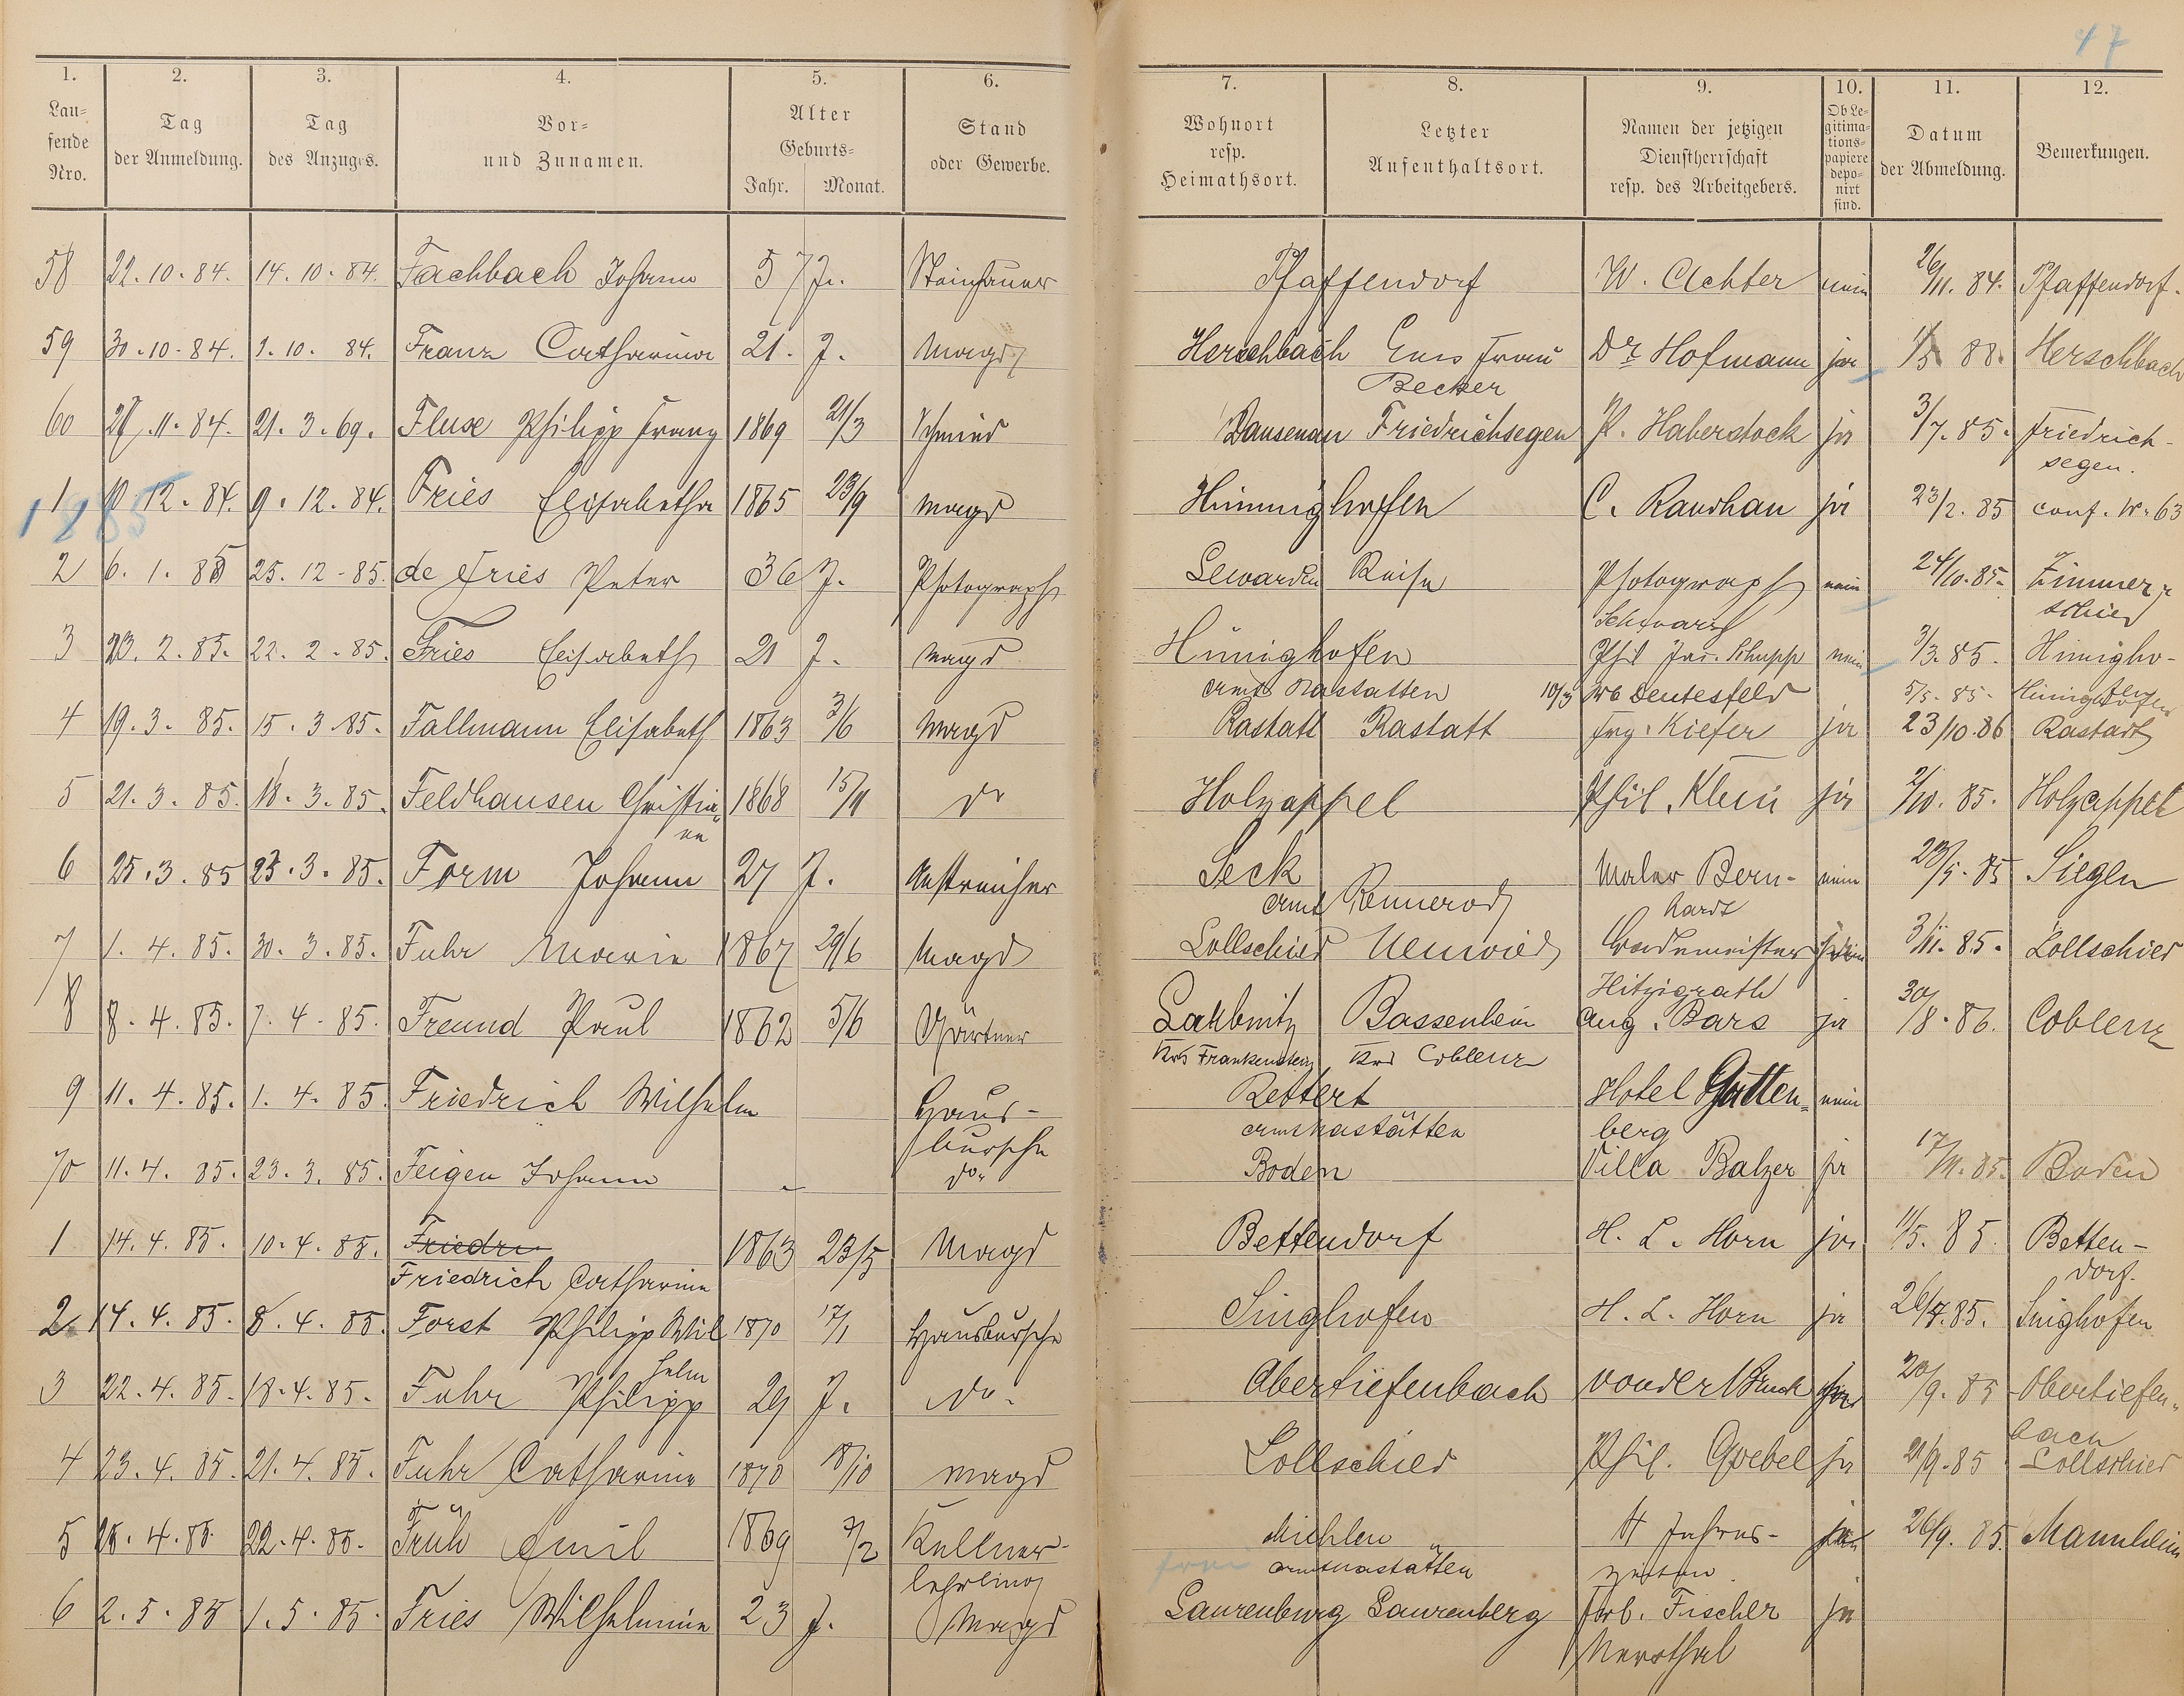 47
1. 2. 3. 4. 5. 6. 7. 8. 9. 10. 11. 12.
Lau=
fende
Nro.
Tag
der Anmeldung.
Tag
des Anzuges.
Vor=
und Zunamen.
Alter
Geburts=
Jahr. Monat.
Stand
oder Gewerbe.
Wohnort
resp.
Heimathsort.
Letzter
Aufenthaltsort.
Namen der jetzigen
Dienstherrschaft
resp. des Arbeitgebers.
Ob Le=
gitima=
tions=
papiere
depo=
nirt
sind.
Datum
der Abmeldung.
Bemerkungen.
58 22. 10. 84. 14. 10. 84. Fachbach Johann 57 J. Steinhauer Pfaffendorf W. Achter nein 26/11. 84. Pfaffendorf.
59 30. 10. 84. 1. 10. 84. Franz Catharina 21. J. Magd Herschbach Ems Frau Dr. Hofmann ja 1/5 88. Herschbach
Becker
60 21. 3. 69. Fluse Philipp Franz 1869 21/3 Schmied Dausenau Friedrichsegen P. Haberstock ja 3/7. 85. Friedrich-
segen.
1885
1 10. 12. 84. 9. 12. 84. Fries Elisabetha 1865 23/9 Magd Himmighoffen C. Raudhau ja 23/2. 85 conf. Nr. 63
2 6. 1. 85 25. 12. 85. de Fries Peter 36 J. Photograph Lewarden Reise Photograph nein 24/10. 85. Zimmer-
schied
Schwarz
3 23. 2. 85. 22. 2. 85. Fries Elisabeth 21 J. Magd Himighofen Phil Jac. Schupp nein 3/3. 85. Himigho-
fen
amt Nastatten 10/3 Deutesfeld 5/5. 85. Himighofen
4 19. 3. 85. 15. 3. 85. Fallmann Elisabeth 1863 3/6 Magd Rastatt Rastatt Frz. Kiefer ja 23/10. 86 Rastatt
5 21. 3. 85. 18. 3. 85. Feldhausen Christia- 1868 15/11 do Holzappel Phil. Klein ja 2/10. 85. Holzappel
ne
6 25. 3. 85 23. 3. 85. Form Johann 27 J. Anstreicher Seck Maler Bern- nein 23/5. 85 Siegen
amt Rennerod hardt
7 1. 4. 85. 30. 3. 85. Fuhr Marie 1867 29/6 Magd Lollschied Neuwied Bademeister 3/11. 85. Lollschied
Hitzigrath
8 8. 4. 85. 7. 4. 85. Freund Paul 1862 5/6 Gärtner Bassenheim Aug. Bars ja 30/8. 86. Coblenz
Krs Frankenstein Krs Coblenz
9 11. 4. 85. 1. 4. 85 Friedrich Wilhelm Haus- Rettert Hotel Gutten= nein
bursche amt Nastätten berg
70 11. 4. 85. 23. 3. 85. Feigen Johann - do. Boden Villa Balzer ja 17/11. 85. Boden
1 14. 4. 85. 10. 4. 85. Friedri 1863 23/5 Magd Bettendorf H. L. Horn ja 11/5. 85. Betten-
Friedrich Catharine dorf.
2 14. 4. 85. 8. 4. 85. Forst Philipp Wil 1870 17/1 Hausbursche Singhofen H. L. Horn ja 26/7. 85. Singhofen
helm
3 22. 4. 85. 18. 4. 85. Fuhr Philipp 29 J. do. Obertiefenbach von der Bruck 20/9. 85 Obertiefen-
bach
4 23. 4. 85. 21. 4. 85. Fuhr Catharine 1870 18/10 Magd Lollschied Phil. Goebel ja 21/9. 85 Lollschied
5 25. 4. 85. 22. 4. 85. Früh Emil 1869 7/2 Kellner- Miehlen 4 Jahres- 26/9. 85. Mannheim
lehrling amt Nastätten zeiten.
6 2. 5. 85 1. 5. 85. Fries Wilhelmine 23 J. Magd Laurenburg Laurenberg Forb. Fischer ja